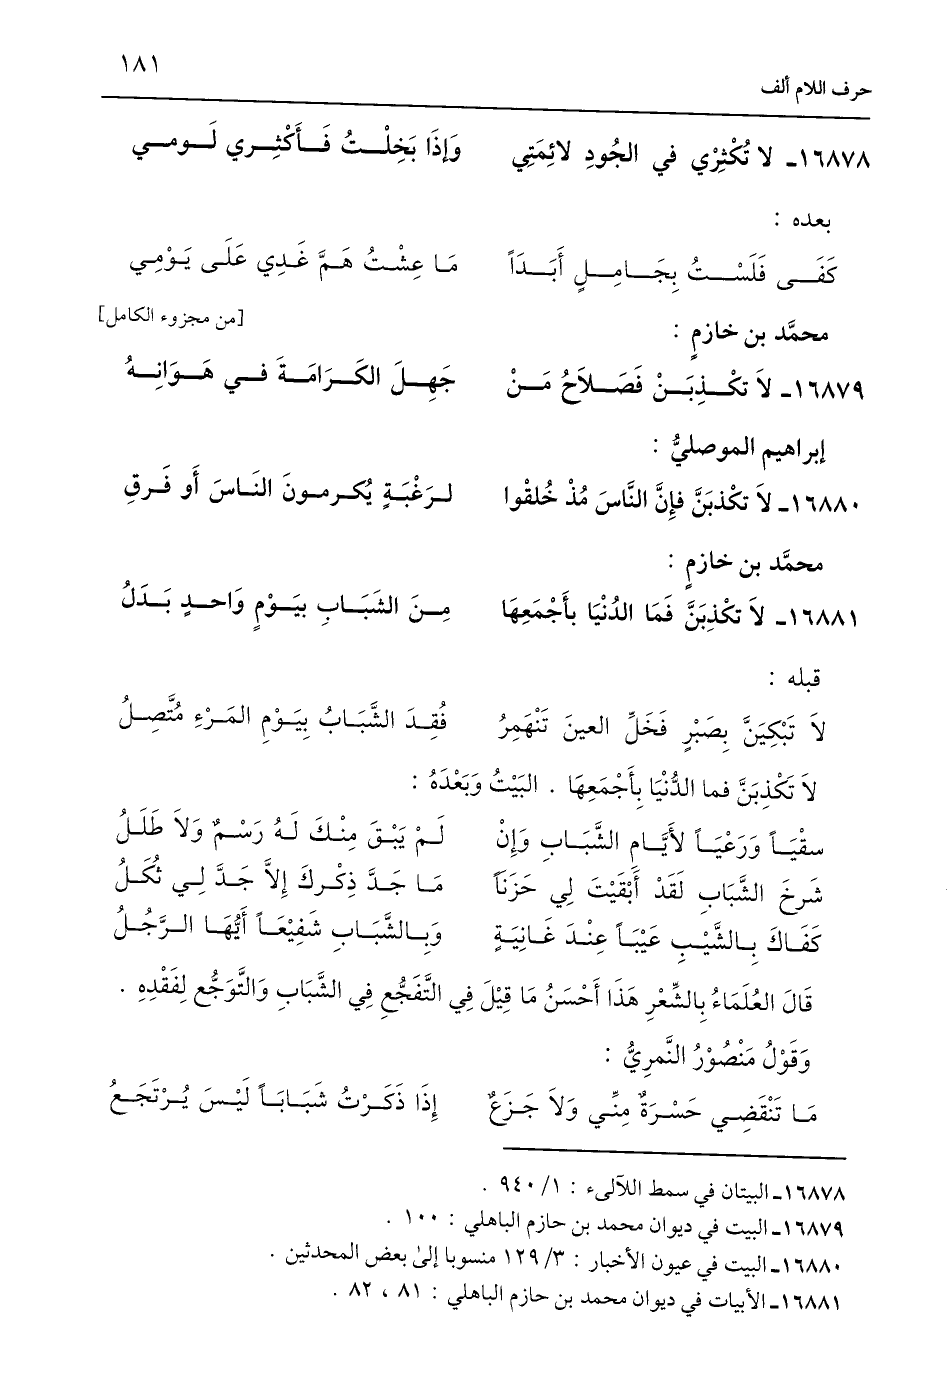 حرف اللام ألف ١٨١
١٦٨٧٨ـ لا تُكْثِرْي في الجُودِ لائِمَتِي وَإِذَا بَخِلْـــتُ فَــأَكْثِــرِي لَــومــي
بعده :
كَفَــى فَلَسْــتُ بِجَــامِــلٍ أَبَــدَاً مَـا عِشْـتُ هَـمَّ غَـدِي عَلَـى يَـوْمِـي
محمَّد بن خازمٍ : [من مجزوء الكامل]
١٦٨٧٩ـ لاَ تكْــذِبَــنْ فَصَــلاَحُ مَــنْ جَهِــلَ الكَــرَامَــةَ فــي هَــوَانِــهُ
إبراهيم الموصليُّ :
١٦٨٨٠ـ لاَ تكْذبَنَّ فإِنَّ النَّاسَ مُذْ خُلقْوا لـرَغْبَـةٍ يُكـرمـونَ النَـاسَ أَو فَـرقِ
محمَّد بن خازمٍ :
١٦٨٨١ـ لاَ تكْذِبَنَّ فَمَا الدُنْيَا بأَجْمَعِهَا مِـنَ الشَبَـابِ بيَـوْمٍ وَاحــدٍ بَــدَلُ
قبله :
لاَ تَبْكِيَنَّ بِصَبْرٍ فَخَلِّ العينَ تَنْهَمِرُ فُقِـدَ الشَّبَـابُ بِيَـوْمِ المَـرْءِ مُتَّصِـلُ
لاَ تَكْذِبَنَّ فما الدُّنْيَا بِأَجْمَعِهَا . البَيْتُ وَبَعْدَهُ :
سقْيَـاً وَرَعْيَـاً لأَيَّـامِ الشَّبَـابِ وَإِنْ لَـمْ يَبْـقَ مِنْـكَ لَـهُ رَسْـمٌ وَلاَ طَلَـلُ
شَرخَ الشَّبابِ لَقَدْ أَبْقَيْتَ لِي حَزَنَاً مَـا جَـدَّ ذِكْـركَ إِلاَّ جَـدَّ لِـي ثُكَـلُ
كَفَـاكَ بِـالشَّيْـبِ عَيْبَـاً عِنْـدَ غَـانِيَـةٍ وَبِـالشَّبَـابِ شَفِيْعَـاً أَيُّهَـا الـرَّجُـلُ
قَالَ العُلَمَاءُ بِالشِّعْرِ هَذَا أَحْسَنُ مَا قِيْلَ فِي التَّفَجُّعِ فِي الشَّبَابِ وَالتَّوَجُّعِ لِفَقْدِهِ .
وَقَوْلُ مَنْصُوْرُ النَّمرِيُّ :
مَـا تَنْقَضِـي حَسْـرَةٌ مِنِّـي وَلاَ جَـزَعٌ إِذَا ذَكَـرْتُ شَبَـابَـاً لَيْـسَ يُـرْتَجَـعُ
١٦٨٧٨ـ البيتان في سمط اللآلىء : ١/ ٩٤٠ .
١٦٨٧٩ـ البيت في ديوان محمد بن حازم الباهلي : ١٠٠ .
١٦٨٨٠ـ البيت في عيون الأخبار : ٣/ ١٢٩ منسوبا إلىٰ بعض المحدثين .
١٦٨٨١ـ الأبيات في ديوان محمد بن حازم الباهلي : ٨١ ، ٨٢ .